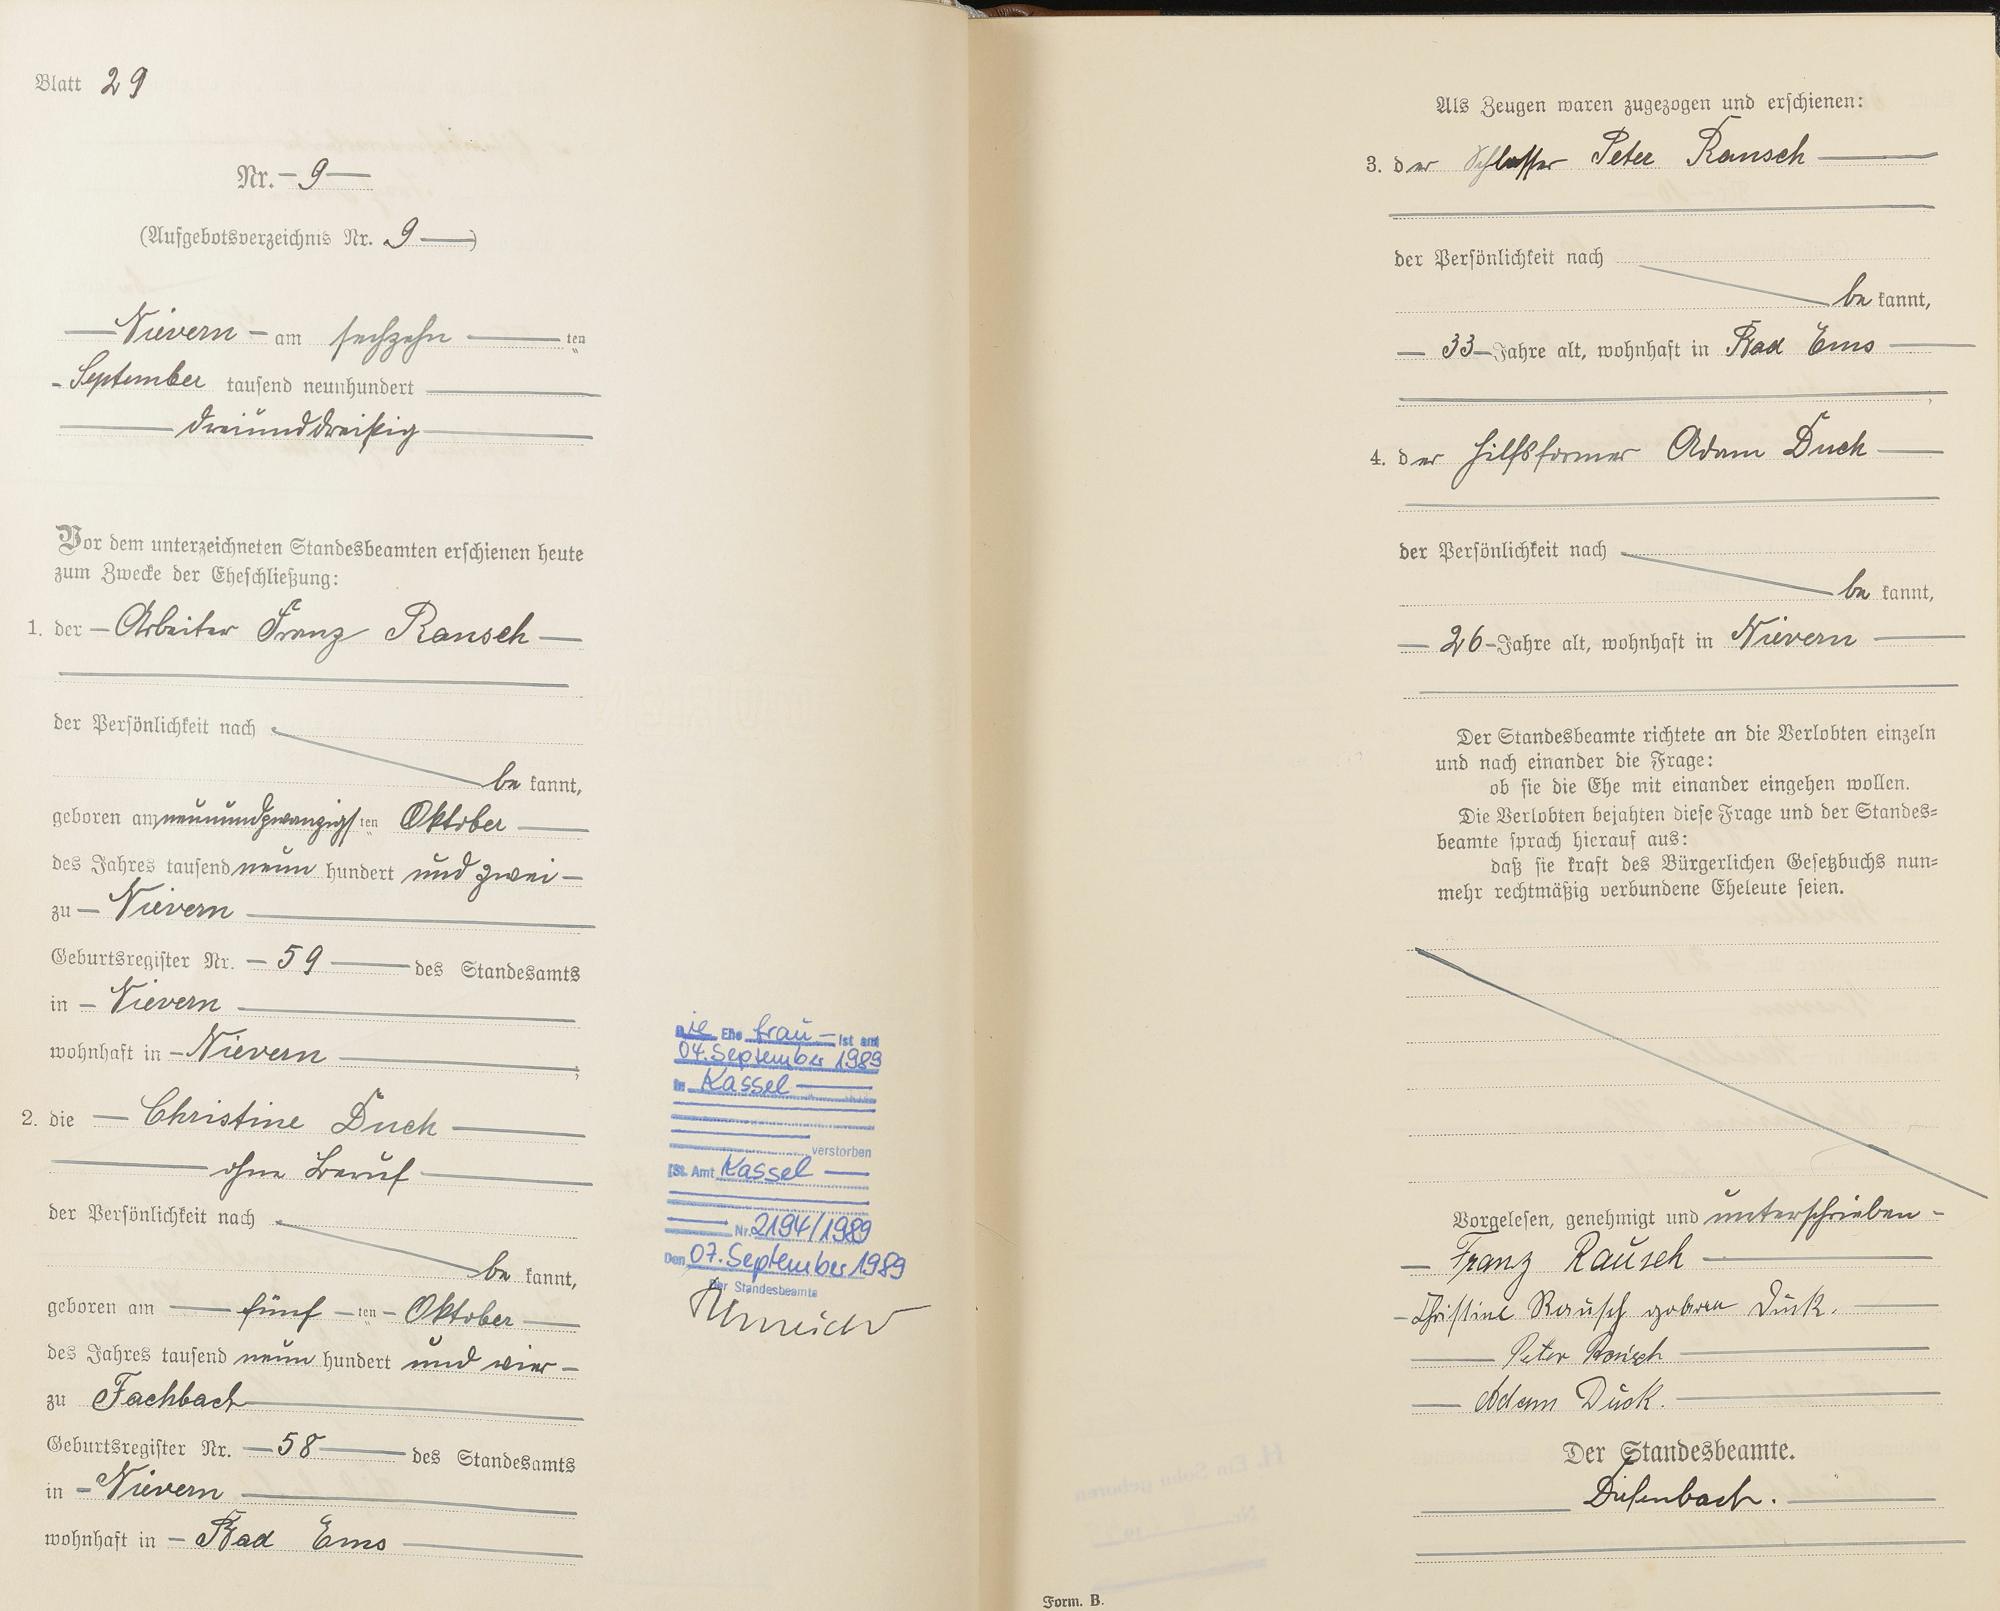 Blatt 29
Nr. 9
(Aufgebotsverzeichnis Nr. 9)
Nievern am sechzehn ten
September tausend neunhundert
dreiunddreißig
Vor dem unterzeichneten Standesbeamten erschienen heute
zum Zwecke der Eheschließung:
1. der Arbeiter Franz Rausch
der Persönlichkeit nach
be kannt,
geboren am neunundzwanzigsten Oktober
des Jahres tausend neun hundert und zwei
zu Nievern
Geburtsregister Nr. 59 des Standesamts
in Nievern
wohnhaft in Nievern
2. die Christine Duck
ohne Beruf
der Persönlichkeit nach
be kannt,
geboren am fünf ten Oktober
des Jahres tausend neun hundert und vier
zu Fachbach
Geburtsregister Nr. 58 des Standesamts
in Nievern
wohnhaft in Bad Ems
Die Ehefrau ist am
04. September 1989
in Kassel
verstorben
[St. Amt Kassel
Nr. 2194/1989
Den 07. September 1989
Der Standesbeamte
Als Zeugen waren zugezogen und erschienen:
3. der Schlosser Peter Rausch
der Persönlichkeit nach
be kannt,
33 Jahre alt, wohnhaft in Bad Ems
4. der Hilfsformer Adam Duck
der Persönlichkeit nach
be kannt,
26 Jahre alt, wohnhaft in Nievern
Der Standesbeamte richtete an die Verlobten einzeln
und nach einander die Frage:
ob sie die Ehe mit einander eingehen wollen.
Die Verlobten bejahten diese Frage und der Standes=
beamte sprach hierauf aus:
daß sie kraft des Bürgerlichen Gesetzbuchs nun=
mehr rechtmäßig verbundene Eheleute seien.
Vorgelesen, genehmigt und unterschrieben
Franz Rausch
Christine Rausch geboren Duck.
Peter Rausch
Adam Duck.
Der Standesbeamte.
Diefenbach.
Form. B.